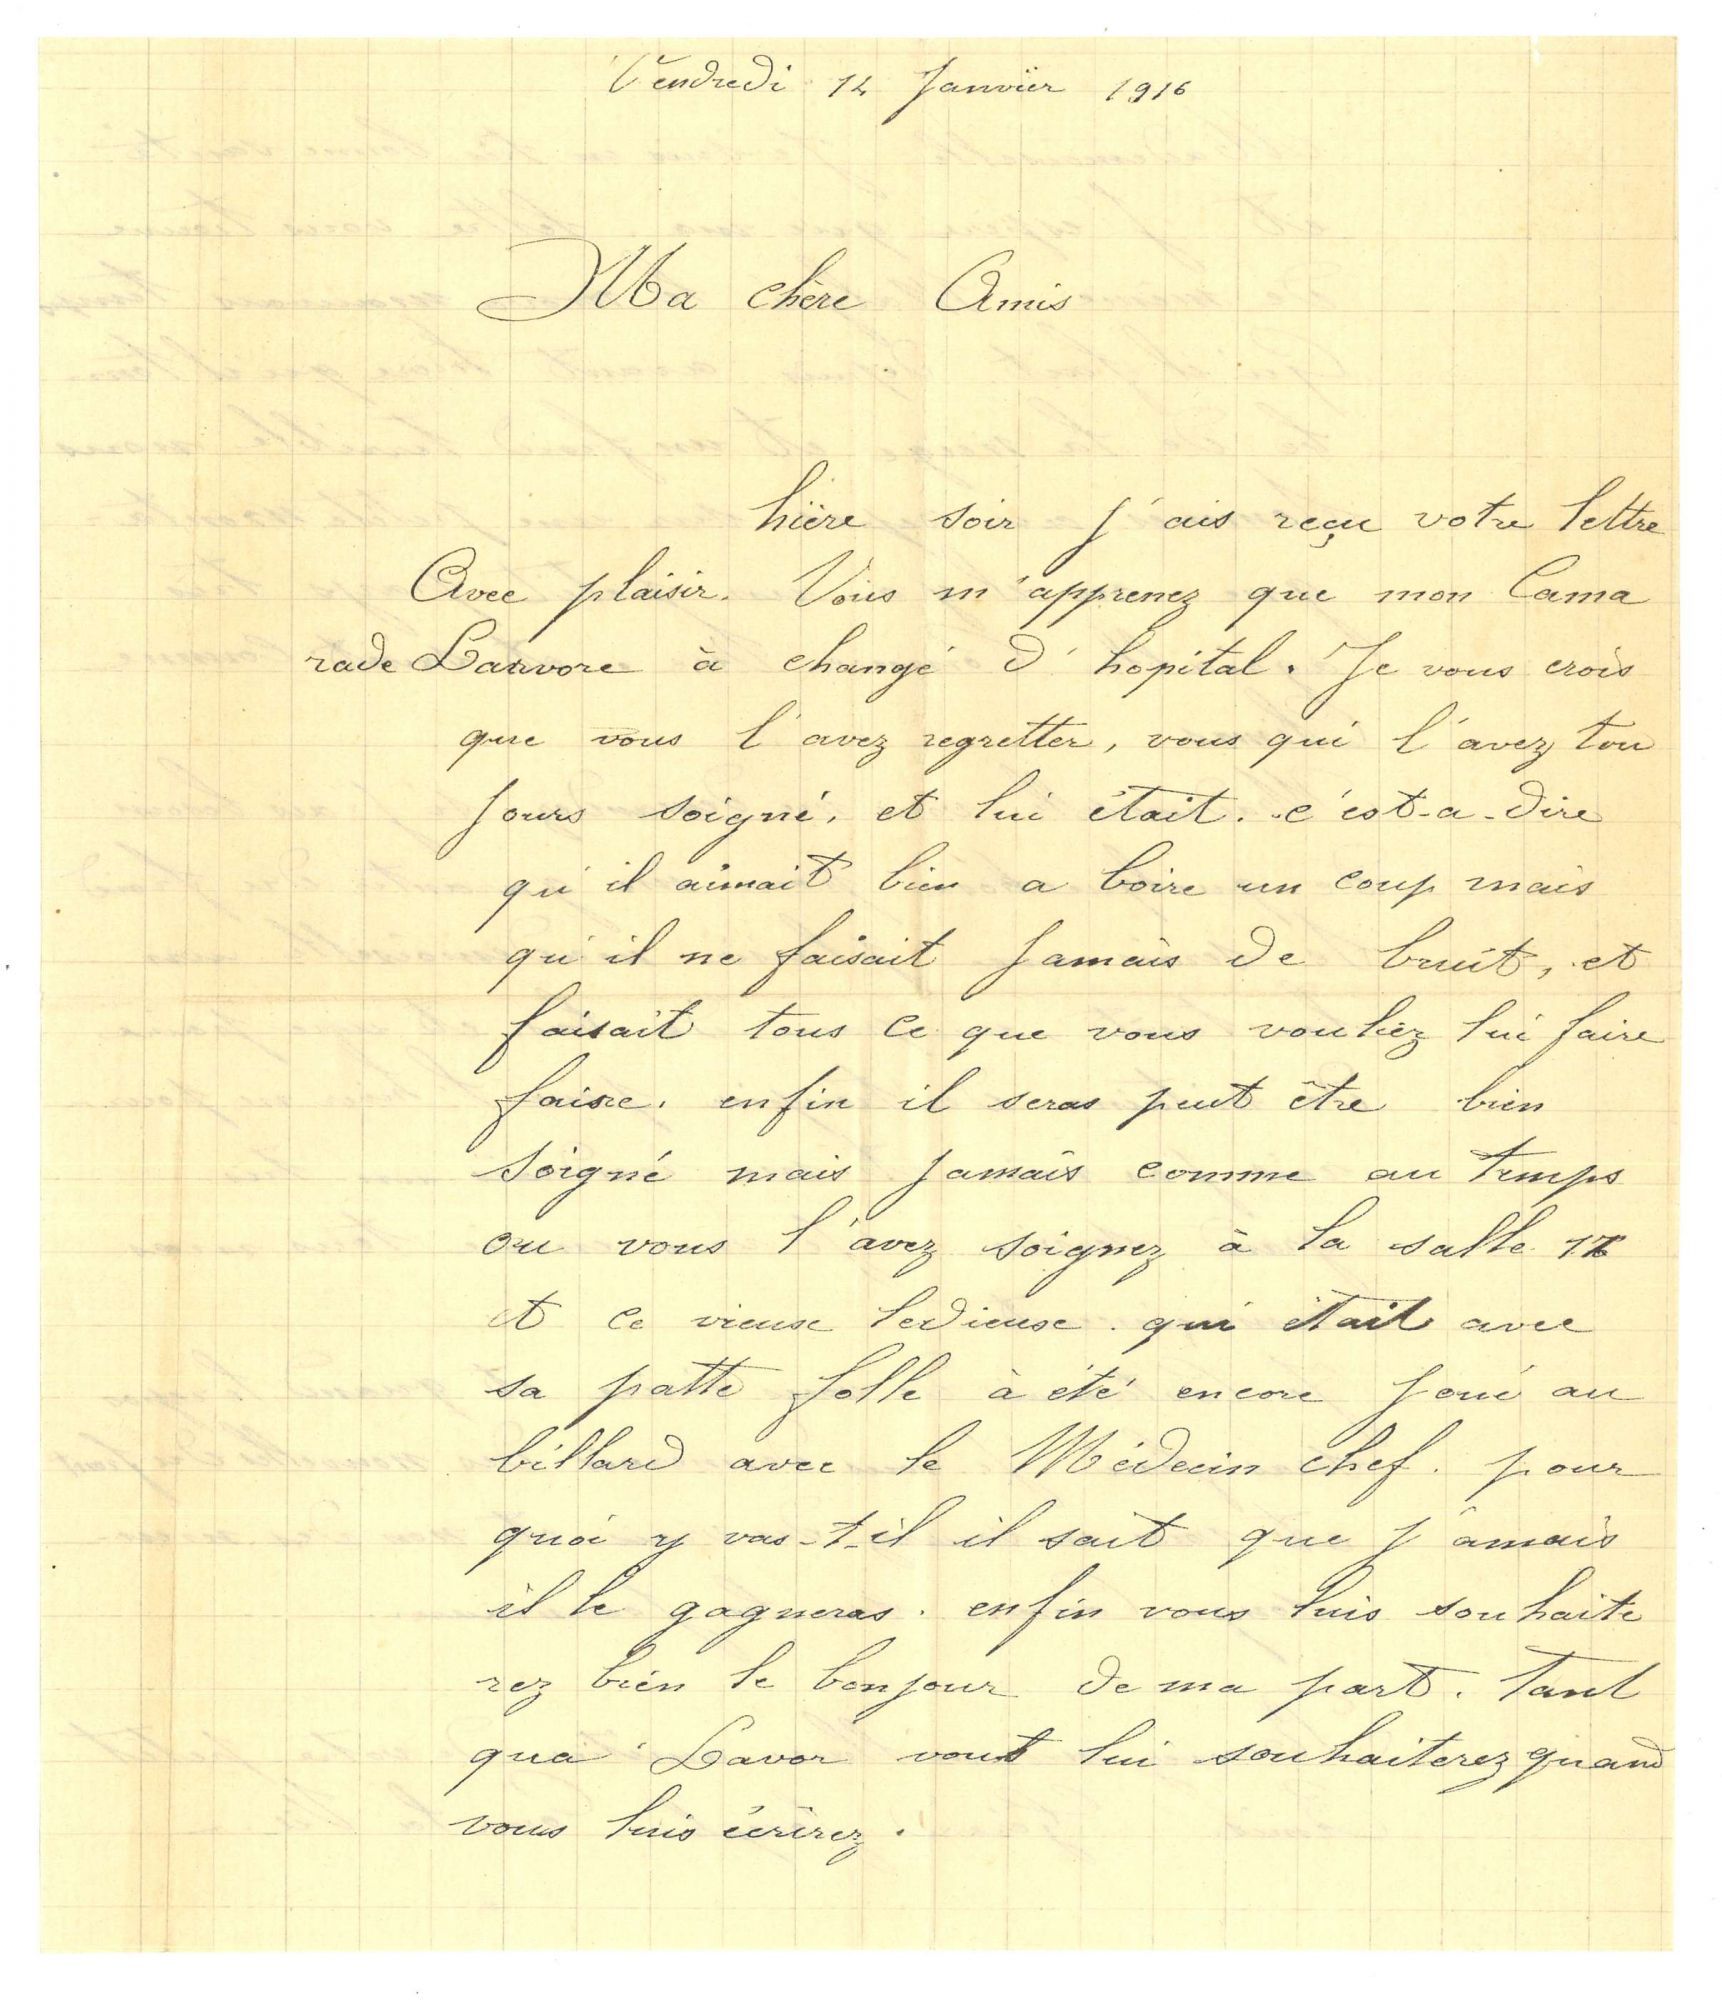 Vendredi 14 Janvïer 1916
Ma chère Amis
hïère soir j'ais reçu votre lettre
Avec plaisir. Vous m'apprenez que mon Cama
rade Larvore à changé d'hopital. Je vous crois
que vous l'avez regretter, vous qui l'avez tou
jours soigné, et lui était. c'est-a-dire
qu'il aimait bien a boire un coup mais
qu'il ne faisait jamais de bruit, et
faisait tous ce que vous vouliez lui faire
faire. enfin il seras peut être bien
soigné mais jamais comme au temps
ou vous l'avez soignez à la salle
et ce vieuse ledieuse. qui était avec
sa patte folle à été encore joué au
billard avec le Médecin chef. pour
quoi y vas-t-il il sait que j'amais
il le gagneras. enfin vous luis souhaite
rez bien le bonjour de ma part. Tant
qua Lavor vous lui souhaiterez quand
vous luis écrirez.